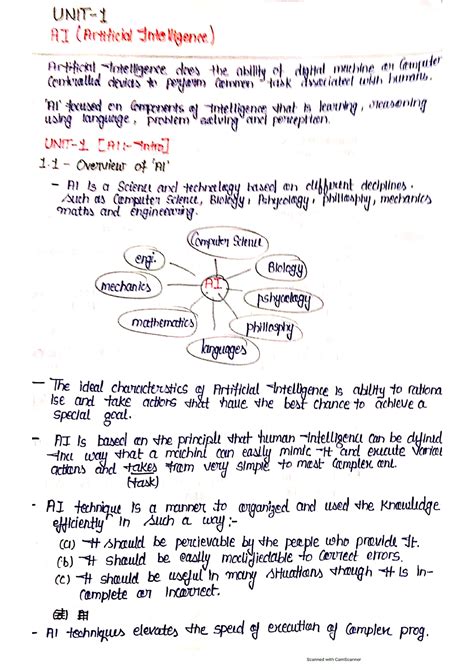 UNIT-1
AI (Artificial Intelligence)
Artificial Intelligence does the ability of digital machine on Computer
Controlled devices to perform common task associated with humans.
'AI' focused on Components of Intelligence that is learning, reasoning
using language, problem solving and perception.
UNIT-1 [AI:- Intro]
1.1 - Overview of 'AI'
- AI is a Science and technology based on different deciplines.
Such as Computer Science, Biology, Pshycology, philosphy, mechanics
maths and engineering.
Computer Science
engi.
Biology
AI
mechanics
pshycology
mathematics
philosphy
languages
- The ideal characterstics of Artificial Intelligence is ability to rationa
lse and take actions that have the best chance to achieve a
special goal.
- AI is based on the principle that human Intelligence can be defined
in a way that a machine can easily mimic it and execute various
actions and takes from very simple to most complex ant.
(task)
- AI technique is a manner to organized and used the knowledge
efficiently in such a way :-
(a) It should be percievable by the people who provide It.
(b) It should be easily modifiedable to correct errors.
(c) It should be useful in many situations though It is in-
complete or Incorrect.
- AI techniques elevates the speed of execution of Complex prog.
Scanned with CamScanner